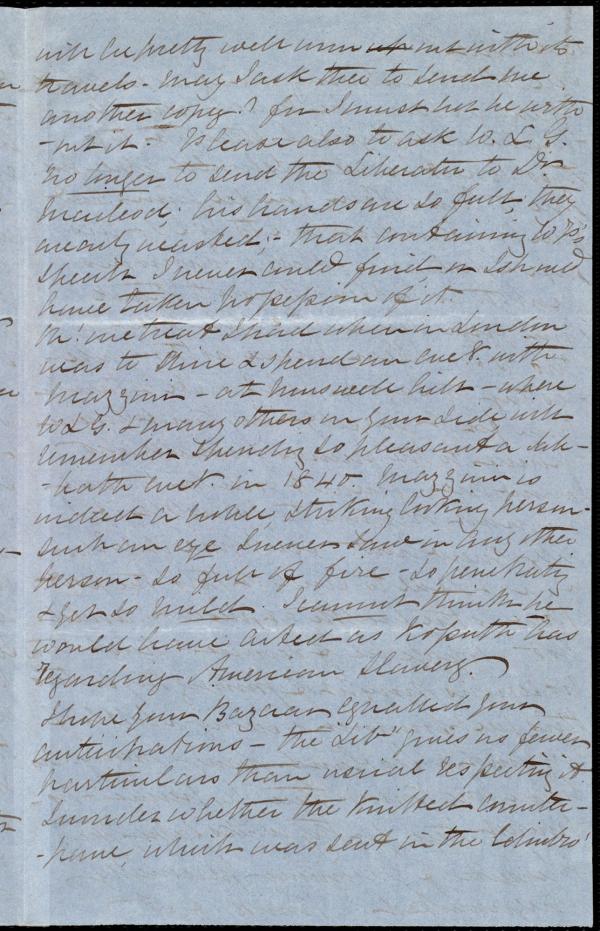 will be pretty well worn up out with its
travels - may I ask thee to send me
another copy? for I must not be with
-out it. Please also to ask W. L. G.
no longer to send the Liberator to Dr
Macleod; his hands are so full, they
are only wasted, - that containing W P's
speech I never could find or I should
have taken possession of it.
Oh! one treat I had when in London
was to dine & spend an eveg. with
Mazzini - at Muswell hill - where
W L G. & many others on your side will
remember spending so pleasant a Sab-
-bath eveg. in 1840. Mazzini is
indeed a noble, striking looking person -
such an eye I never saw in any other
person - so full of fire - so penetrating
& yet so mild. I cannot think he
would have acted as Kossuth has
regarding American Slavery.
I hope your Bazaar equalled your
anticipations - the Libr gives us fewer
particulars than usual respecting it
I wonder whether the knitted counter-
-pane, which was sent in the Edinbro'